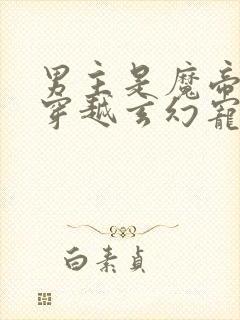 男主是魔帝
穿越玄幻寵
白素貞